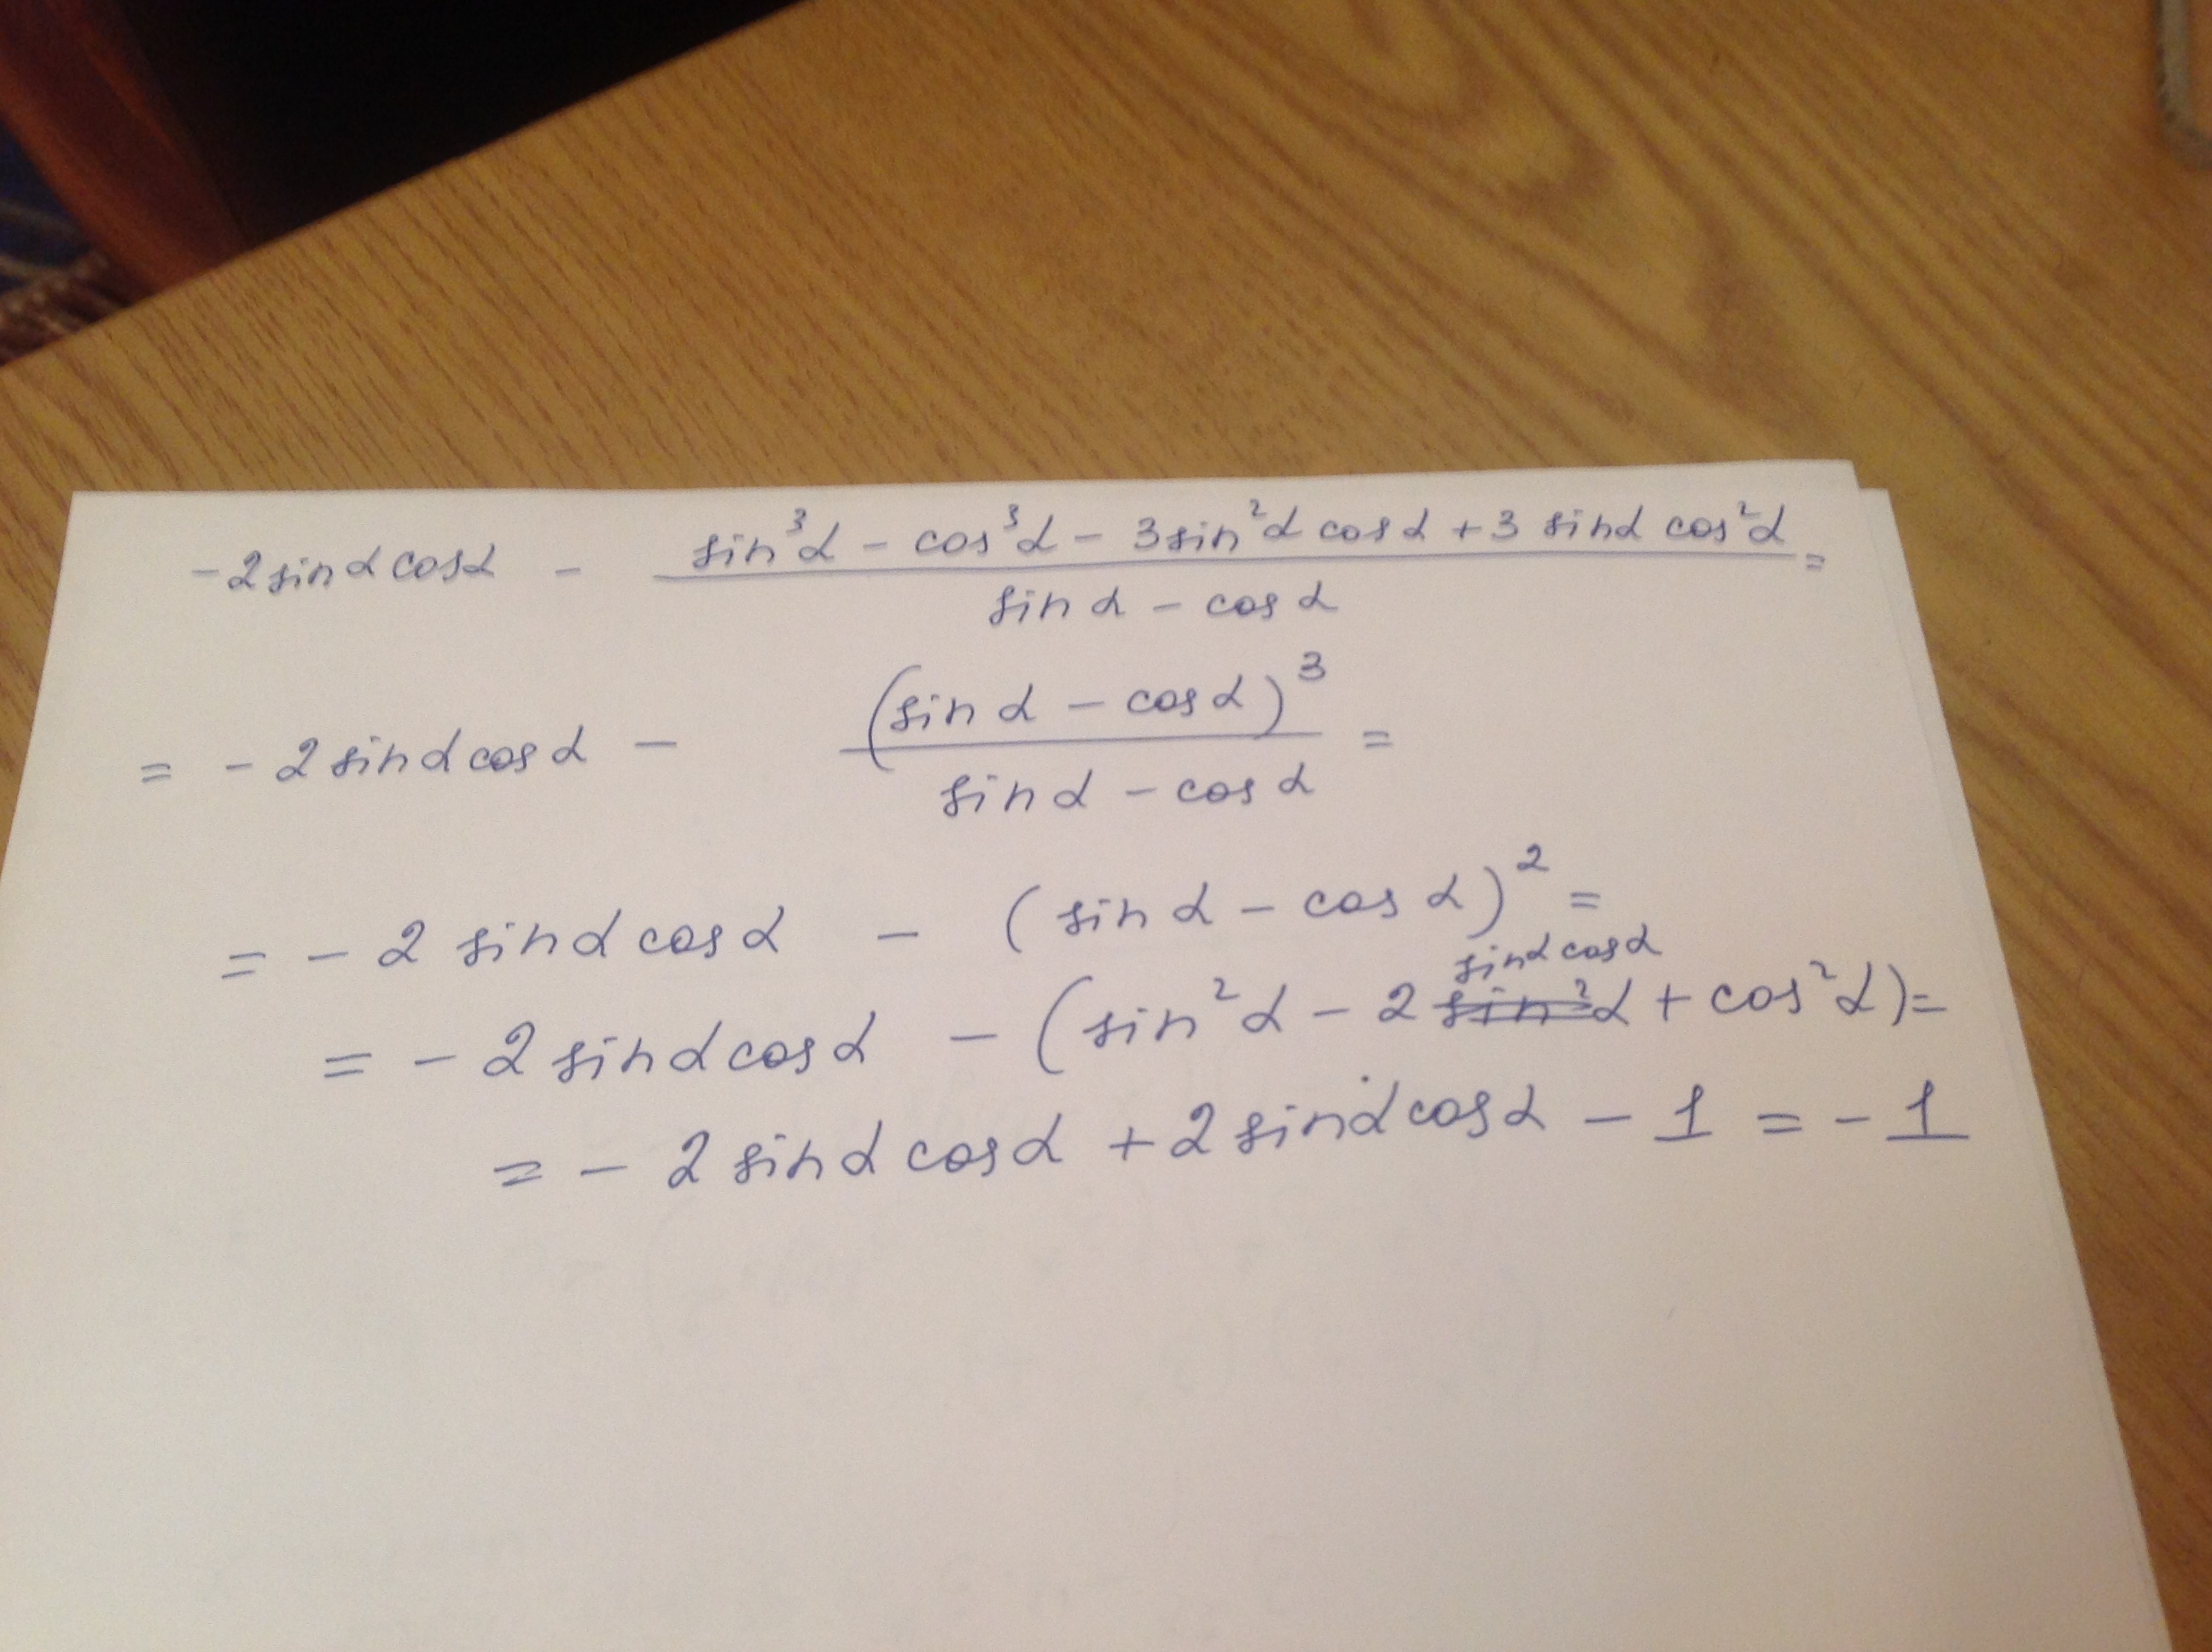 -2sinα cosα - (sin³α - cos³α - 3sin²α cosα + 3 sinα cos²α) / (sinα - cosα) =
= -2sinα cosα - (sinα - cosα)³ / (sinα - cosα) =
= -2 sinα cosα - (sinα - cosα)² =
= -2sinα cosα - (sin²α - 2 sinα cosα + cos²α) =
= -2sinα cosα + 2sinα cosα - 1 = -1